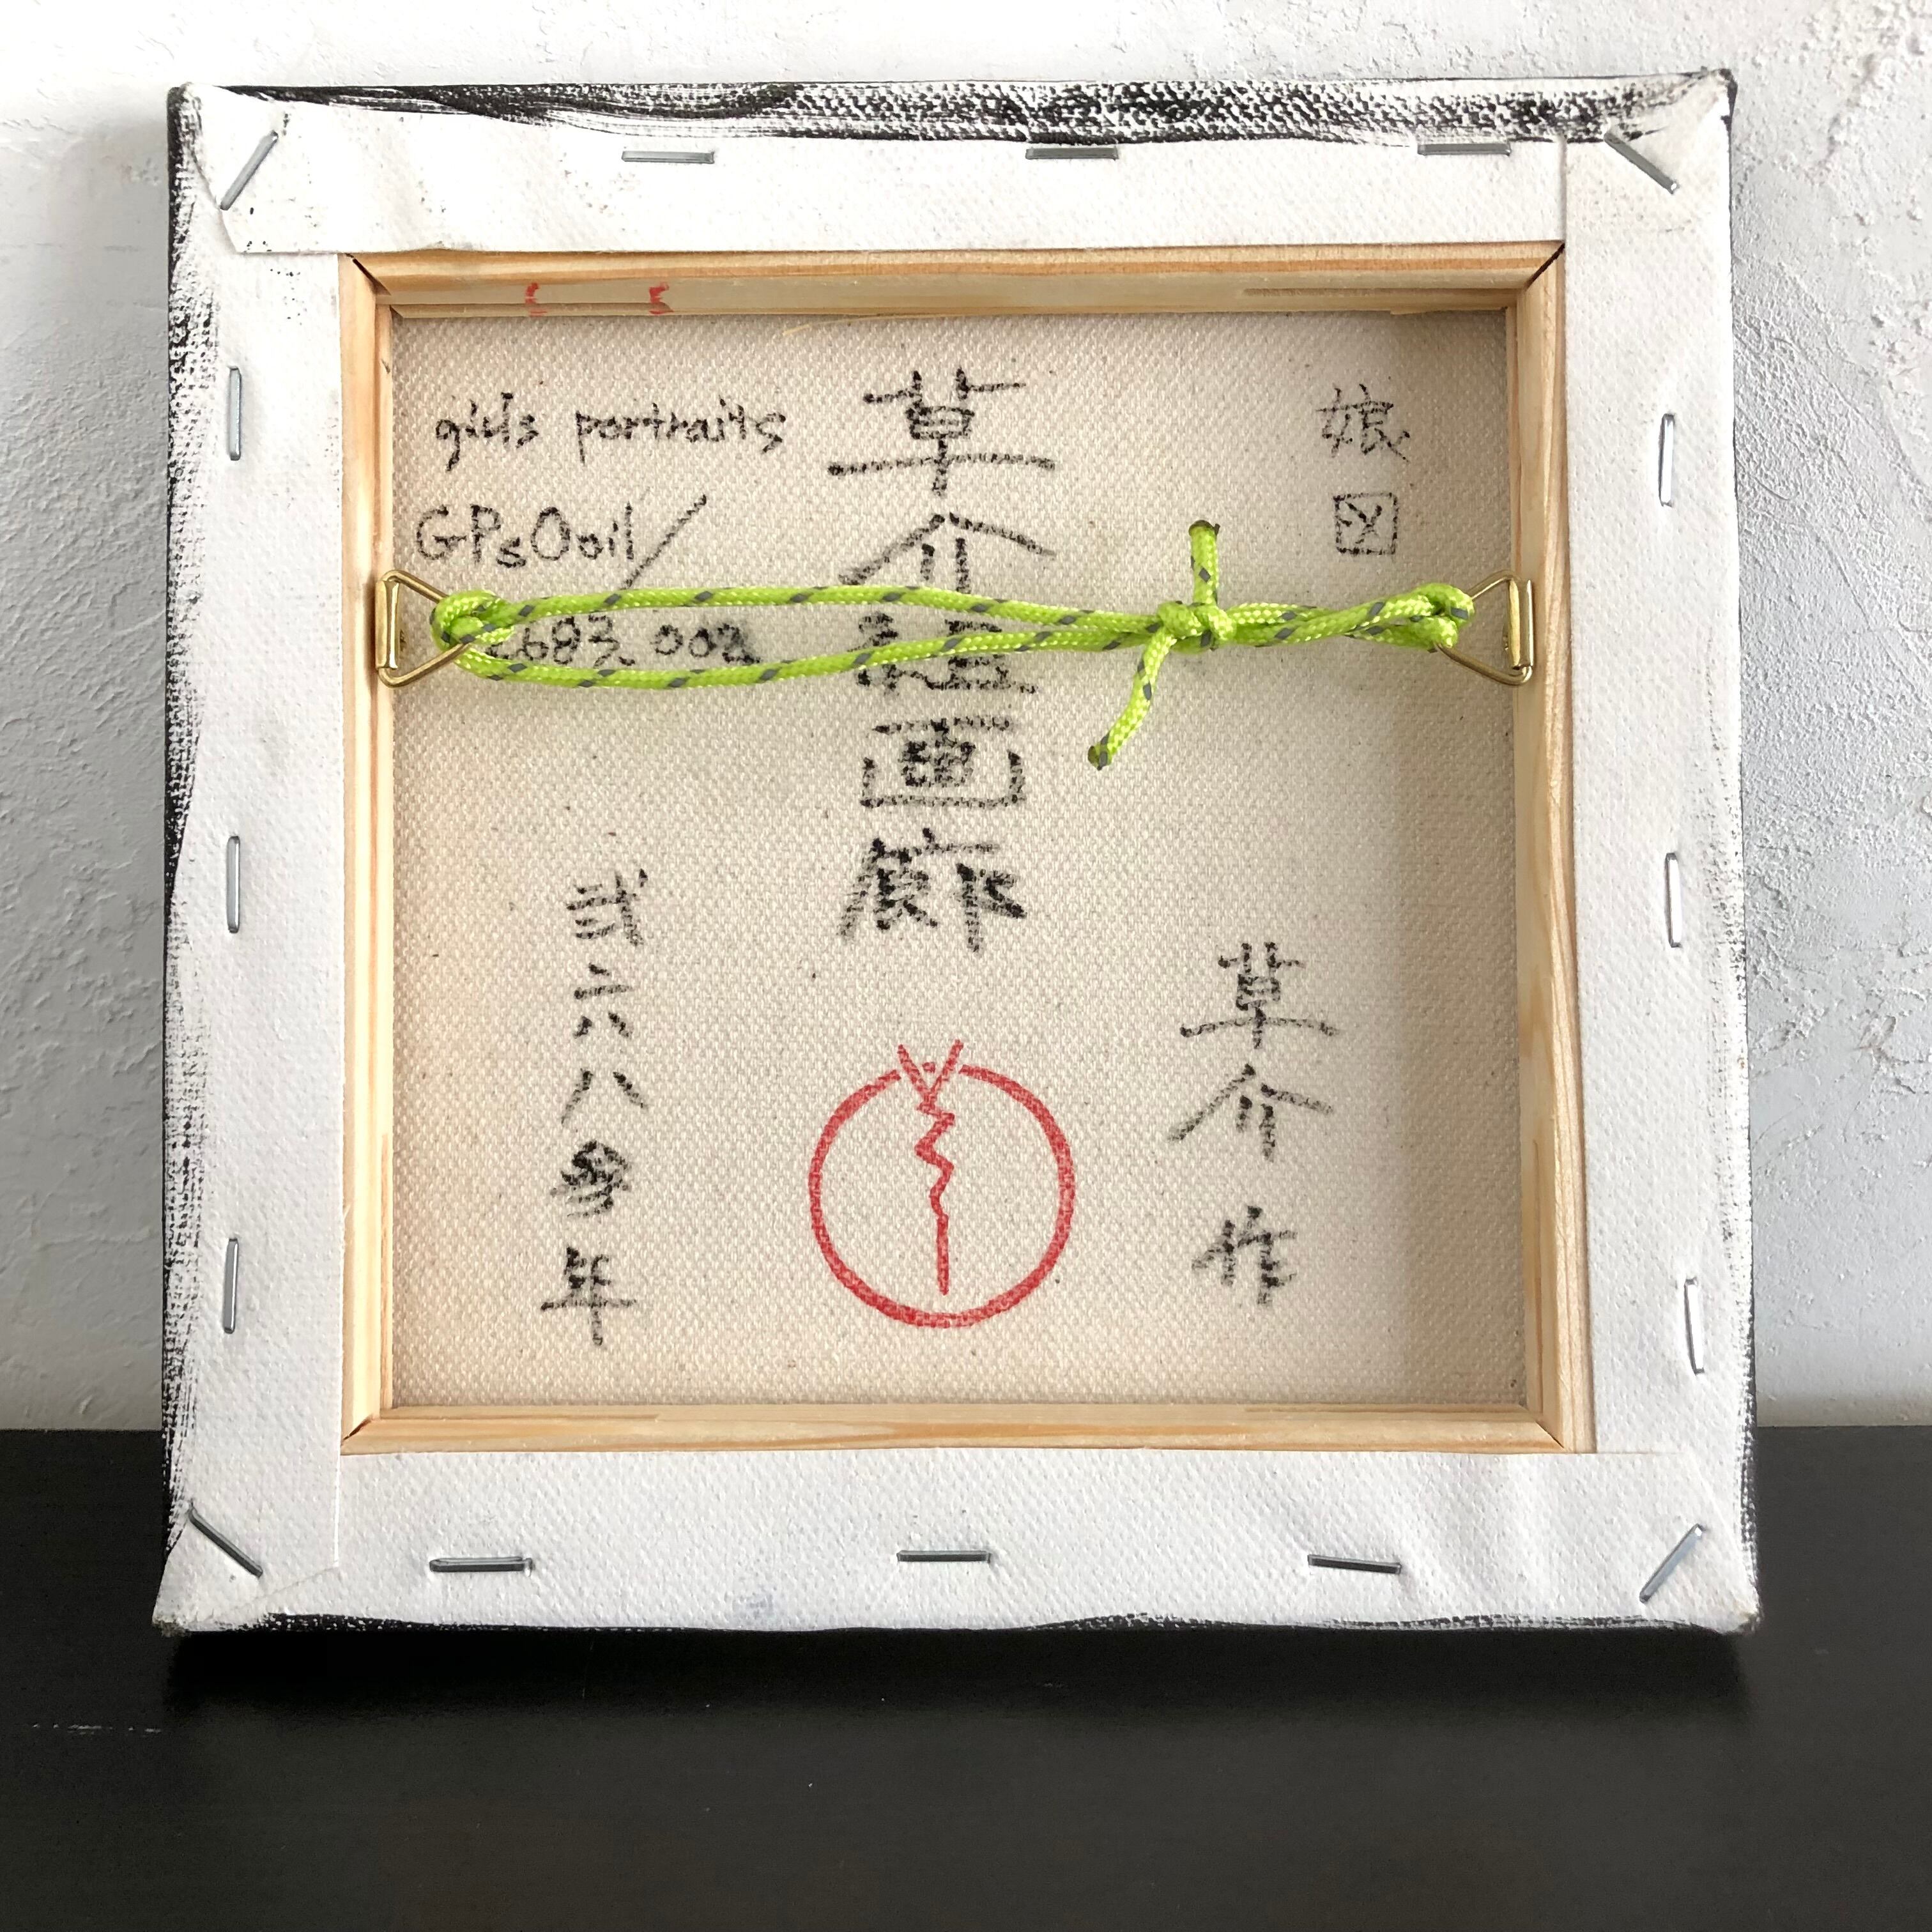 娘図
草介作
草介画廊
girls portraits
GPs0oil/
2683.002
弐六八参年